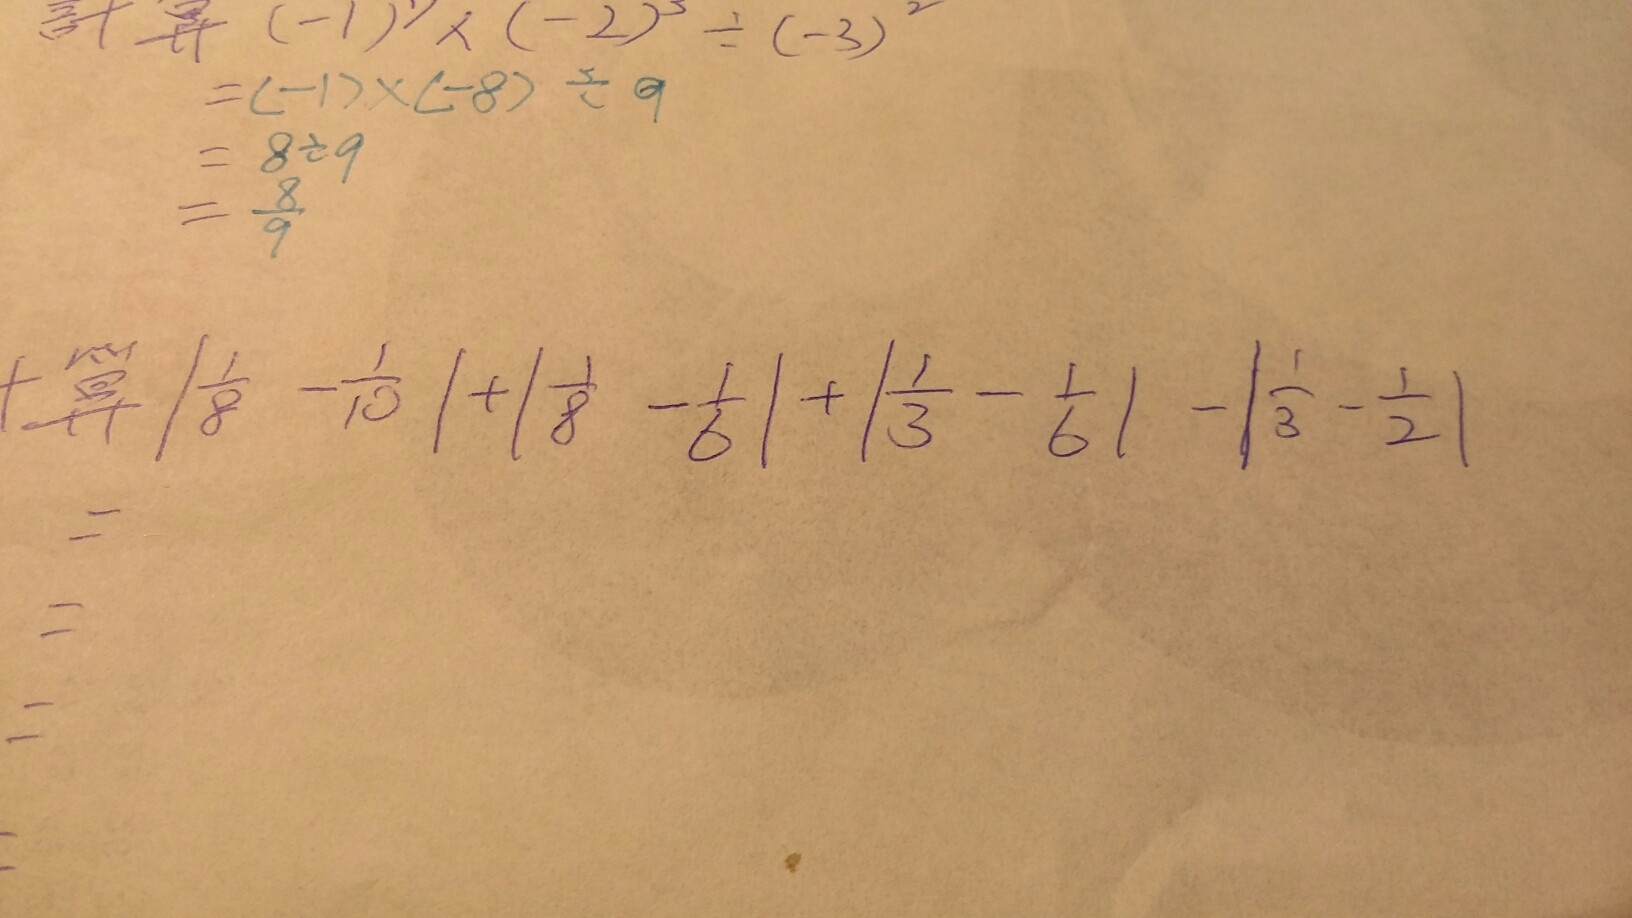 計算 (-1) × (-2)³ ÷ (-3)²
= (-1) × (-8) ÷ 9
= 8÷9
= 8/9
算 |1/8 - 1/10| + |1/8 - 1/6| + |1/3 - 1/6| - |1/3 - 1/2|
=
=
=
=